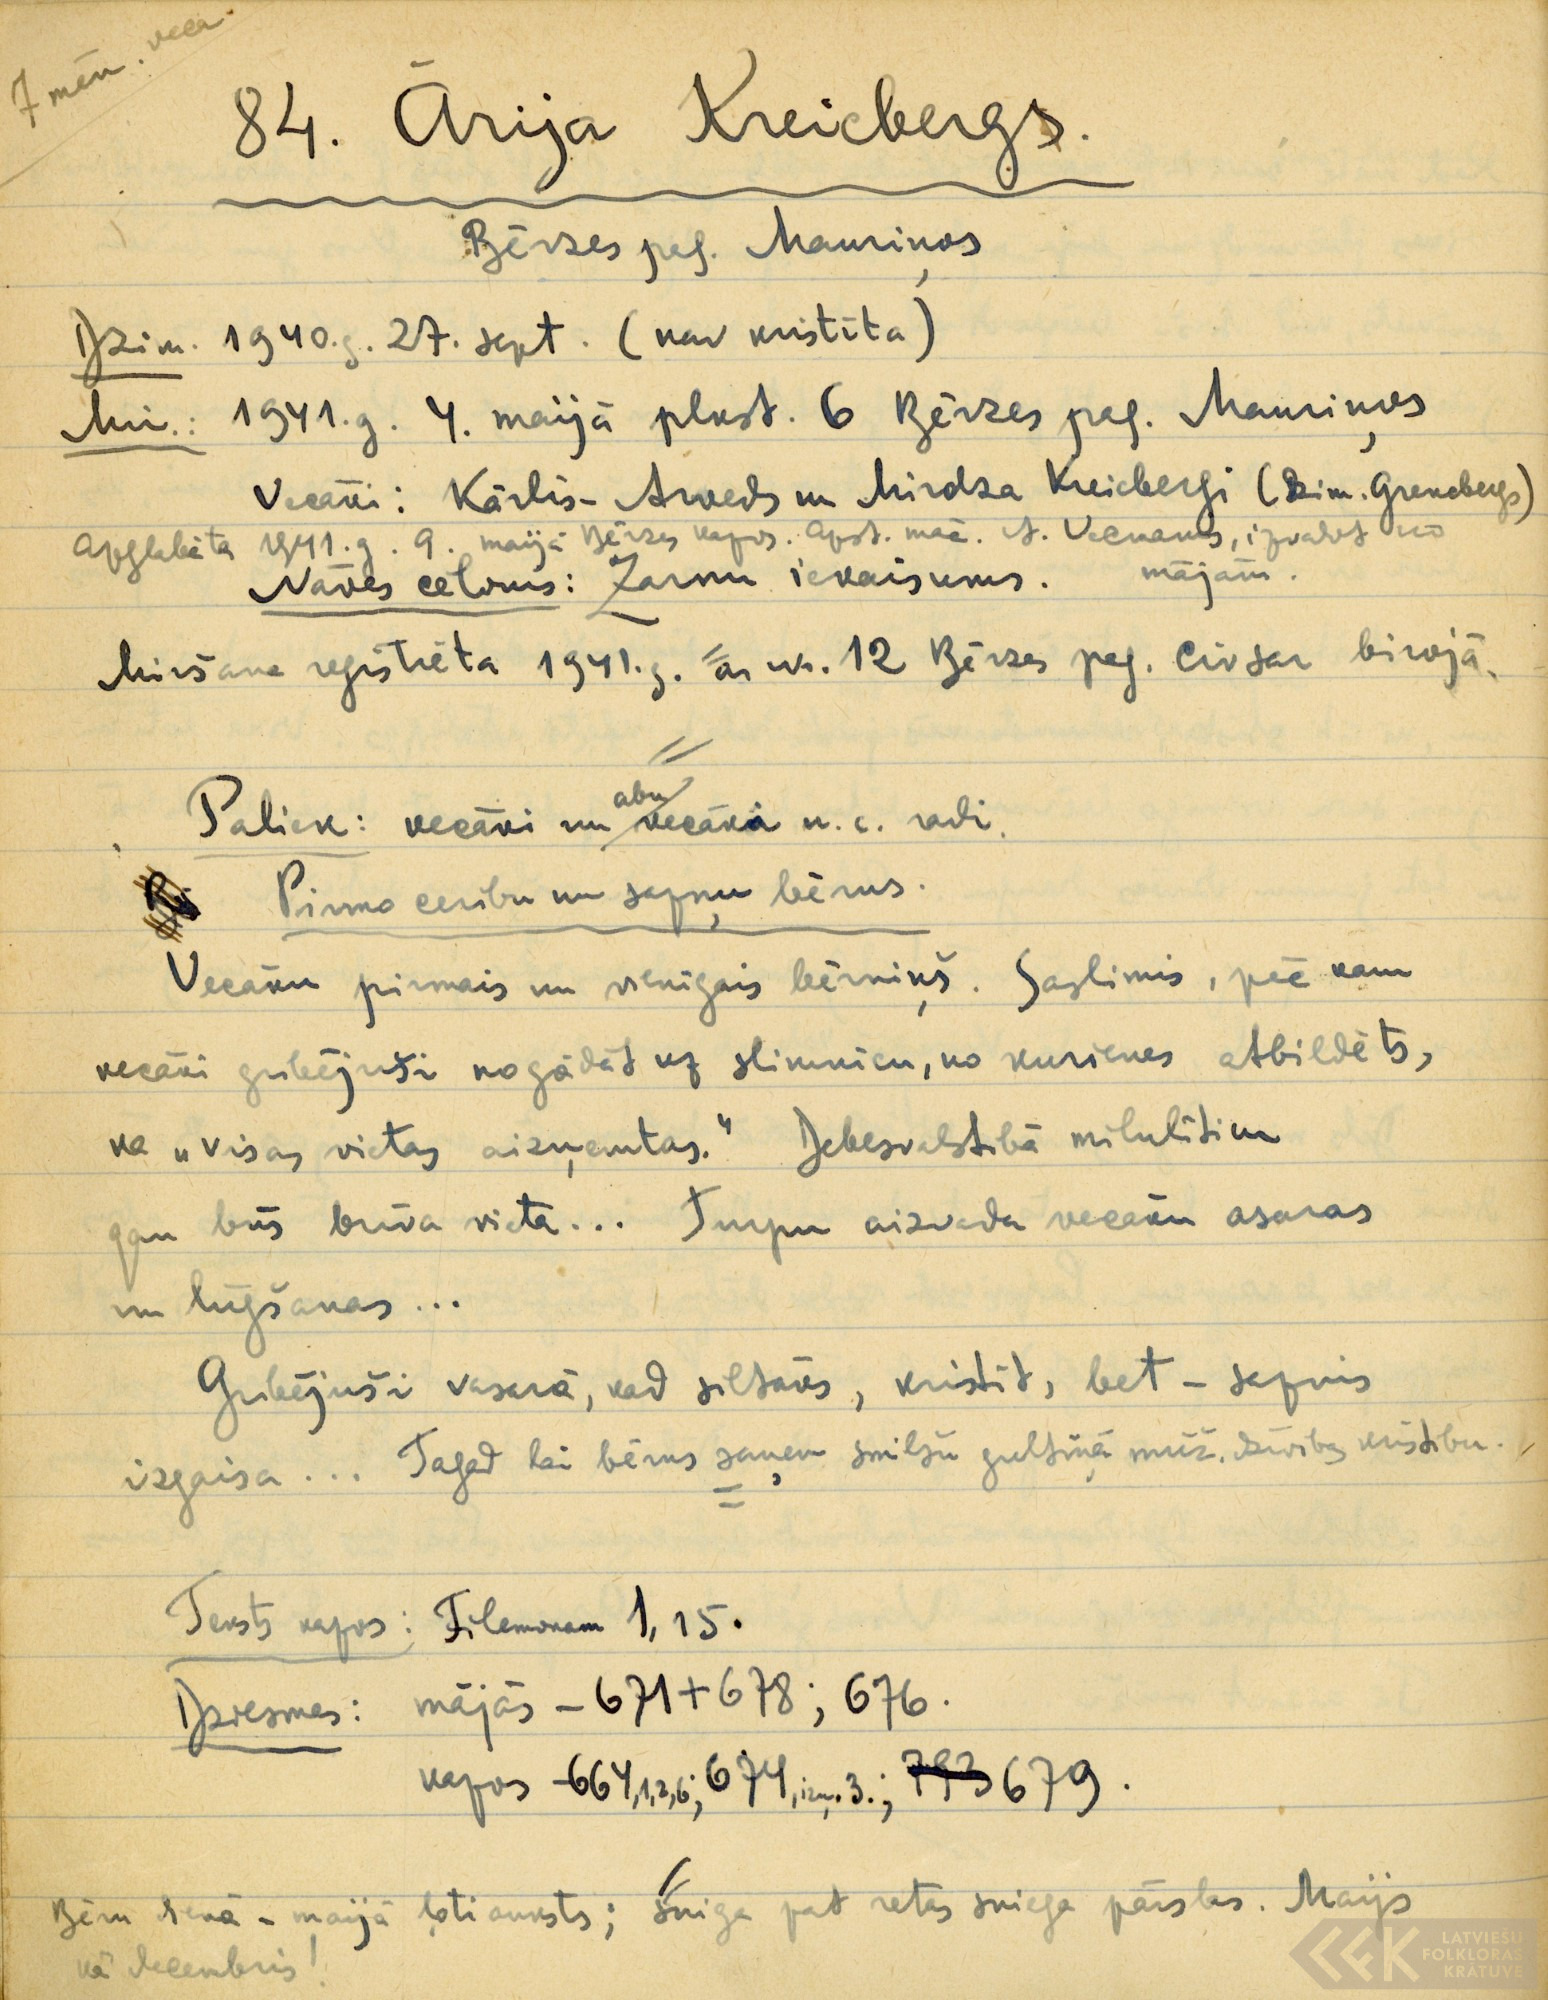 7 mēn. veca.
84. Ārija Kreicbergs.
Bērzes pag. Mauriņos
Dzim. 1940.g. 27. sept. (nav kristīta)
Mir.: 1941.g. 4. maijā plkst. 6 Bērzes pag. Mauriņos
Vecāki: Kārlis-Arveds un Mirdza Kreicbergi (dzim. Grencbergs)
Apglabāta 1941.g. 9. maijā Bērzes kapos. Apst. māc. A. Vecmanis, izvadot no
Nāves cēlonis: Zarnu iekaisums. mājām.
Miršana reģistrēta 1941.g. ar nr. 12 Bērzes pag. Civ.sar birojā.
Paliek: vecāki un abu vecāki u.c. radi.
Pirmo cerību un sapņu bērns.
Vecāku pirmais un vienīgais bērniņš. Saslimis, pēc kam
vecāki gribējuši nogādāt uz slimnīcu, no kurienes atbildēts,
ka „visas vietas aizņemtas." Debesvalstībā mīlulītim
gan būs brīva vieta... Turpu aizvada vecāku asaras
un lūgšanas...
Gribējuši vasarā, kad siltāks, kristīt, bet - sapnis
izgaisa... Tagad lai bērns saņem smilšu gultiņā mūž. dzīvības kristību.
Teksts kapos: Filemonam 1, 15.
Dziesmas: mājās - 671+678; 676.
kapos - 664,1,2,6; 674, izņ. 3.; 793 679.
Bēru dienā - maijā ļoti auksts; sniga pat retas sniega pārslas. Maijs
kā decembris!
LATVIEŠU
FOLKLORAS
KRĀTUVE